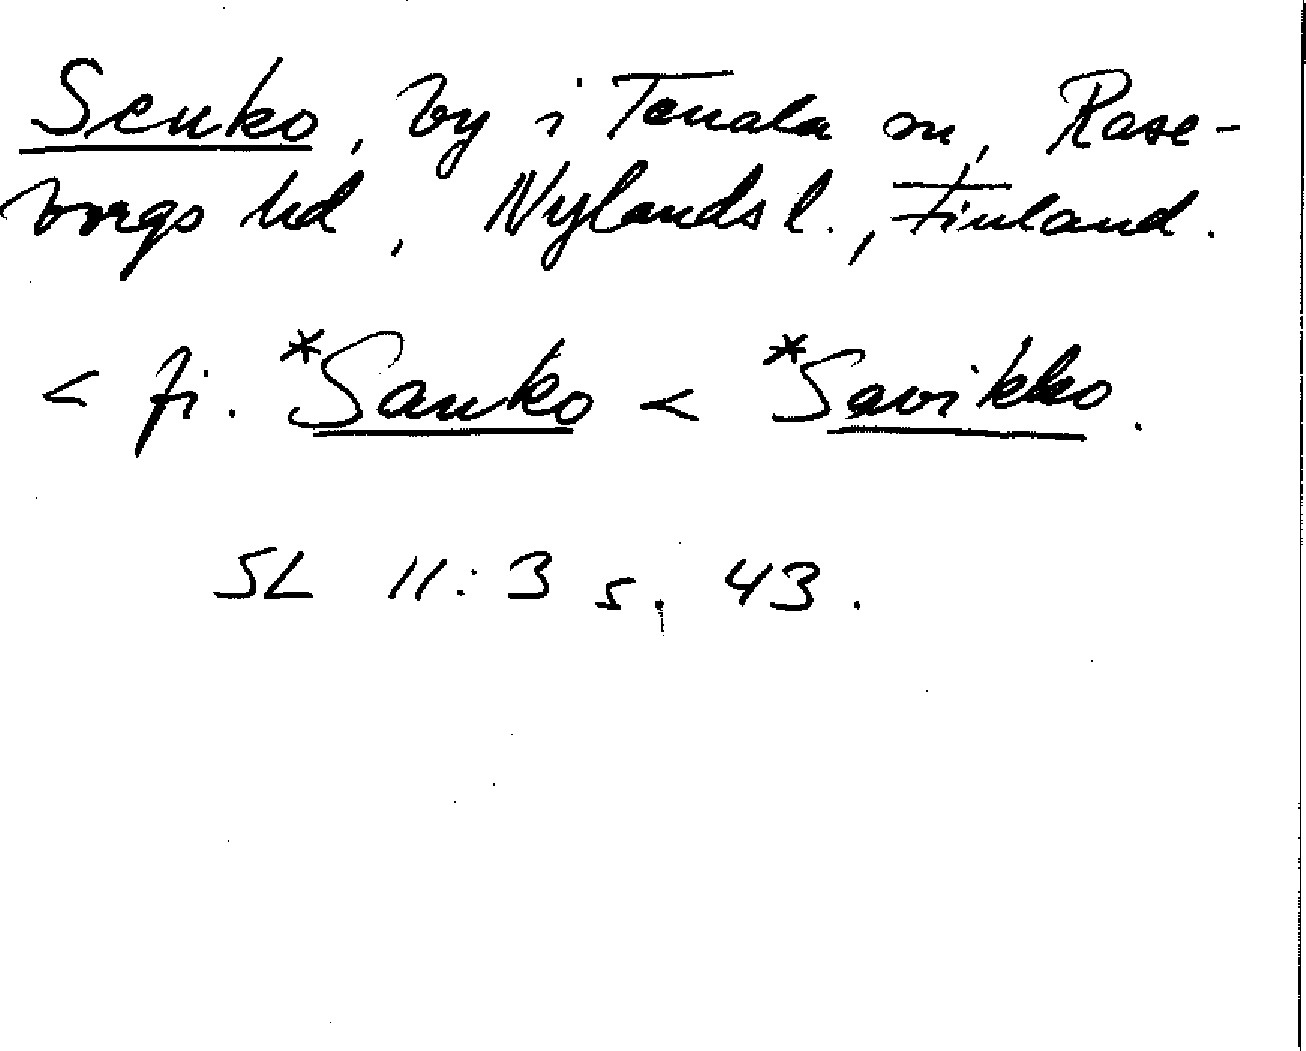 Seuko, by i Tenala sn, Rase-
borgs hd, Nylands l., Finland.
< fi. *Sauko < *Savikko.
SL 11:3 s. 43.